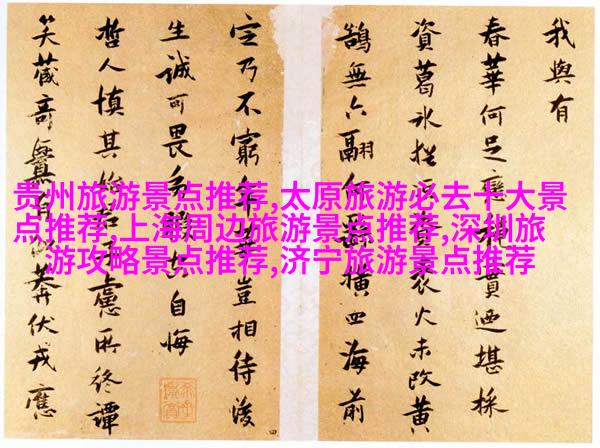 贵州旅游景点推荐,太原旅游必去十大景
点推荐,上海周边旅游景点推荐,深圳旅
游攻略景点推荐,济宁旅游景点推荐
我與有
春華何足應貢迺堪採
資葛氷裘火未改黃
鵠無六翮橫四海前
空乃不窮年華豈相待後
生誠可畏自悔
哲人慎其始慮所終譚
笑藏奇釁有莽伏戎應
四